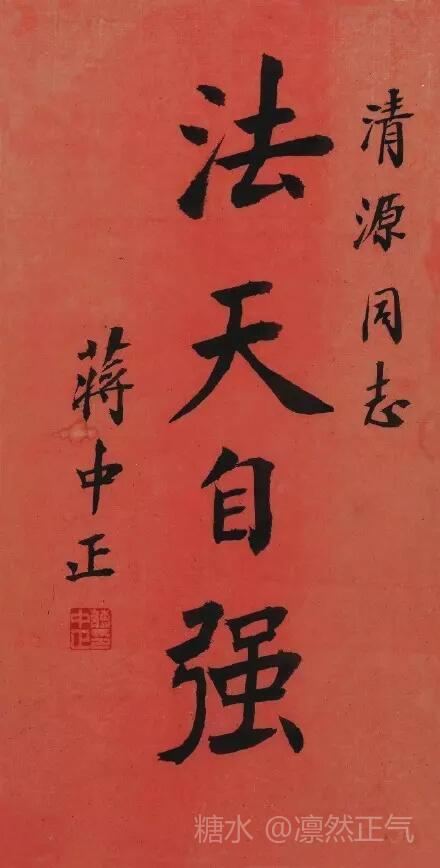 清源同志
法天自强
蔣中正
糖水 @凛然正气